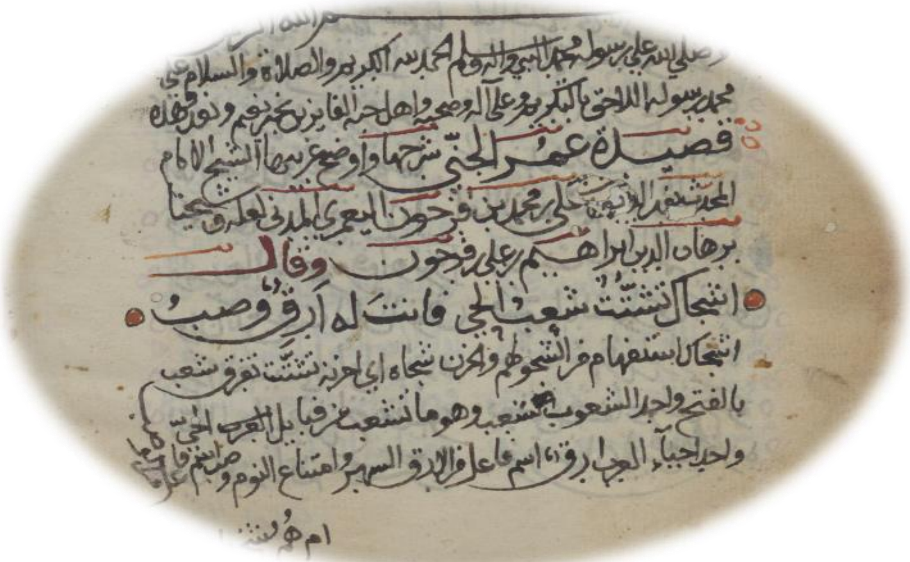 وصلي الله علي رسوله محمد النبي واله وسلم الحمد لله الكريم والصلاة والسلام علي
محمد رسوله وعلي آله وصحبه واهل الفايزين ونعيم وبعد فهذه
قصيدة عمر الجني شرحها واوضح غريبها الشيخ الامام
المحدث علي بن محمد بن فرحون اليعمري المدني
برهان الدين ابراهيم بن علي بن فرحون وقال
اشجاك تشتت شعب الحي فانت له ارق وصب
اشجاك استفهام من الشجو وهو الهم والحزن شجاه اي احزنه تشتت تفرق شعب
بالفتح واحد الشعوب وهو ما تشعب من قبايل العرب الحي
واحد احياء العرب ارق اسم فاعل من الارق السهر وامتناع النوم وصب اسم فاعل
ام هم